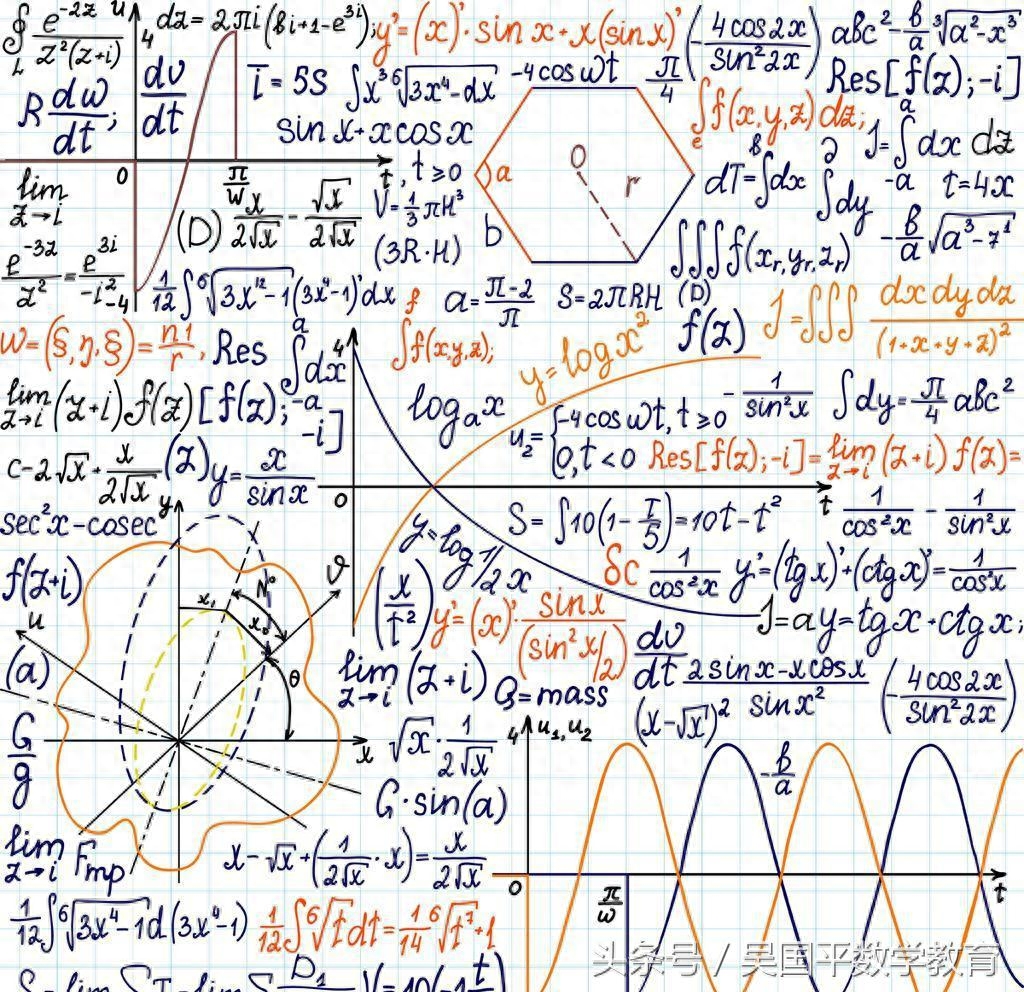 ∮_L e^{-2z}/(z²(z+i)) u 4 dz = 2πi(bi+1-e^{3i}); y'=(x)'·sin x+x(sin x)' (-4cos2x/sin²2x) abc²-b/a ∛(a²-x³)
R dw/dt; dv/dt ī = 5S ∫x³ ⁶√(3x⁴-dx) -4cos wt π/4 Res[f(z);-i]
sin x+x cos x ∫_e f(x,y,z)dz; J=∫_{-a}^{a} dx dz
0 π/w t , t≥0 a O r dT=∫^в dx ∫^∂ dy t=4x
lim z→i (D) x/(2√x) - √x/(2√x) V=1/3πH³ b
e^{-3z}/z² = e^{3i}/(-i²) -4 (3R·H) ∫∫∫f(x_r,y_r,z_r) -b/a √(a³-7¹)
1/12 ∫⁶√(3x¹²-1)(3x⁴-1)'dx f a=(π-2)/π S=2πRH (D) J=∫∫∫ dx dy dz/(1+x+y+z)²
w=(§,η,§)=n1/r, Res ∫_{-a}^{a} dx 4 ∫f(x,y,z); y=log x² f(z)
lim z→i (z+i)f(z)[f(z);-i] log_a x u₂={-4cos wt, t≥0 -1/sin²x ∫dy=π/4 abc²
0,t<0 Res[f(z);-i]=lim z→i (z+i)f(z)=
c-2√x+x/(2√x) (z) y=x/sin x
0 t
sec²x-cosec y S=∫10(1-T/5)=10t-t² 1/cos²x - 1/sin²x
f(z+i) N° v y=log1/2 x δc 1/cos²x y'=(tgx)'+(ctgx)'=1/cos²x
u x₁ x₀ (x/t²) y'=(x)' sinx/(sin²x/2) J=ay=tgx+ctgx;
(a) θ lim z→i (z+i) Q=mass dv/dt (2sinx-xcosx)/sinx² (-4cos2x/sin²2x)
G/g x √x·1/(2√x) 4 u₁,u₂ (x-√x)² -b/a
G·sin(a)
lim z→i Fmp x-√x+(1/(2√x)·x)=x/(2√x) 0 π/w t
1/12∫⁶√(3x⁴-1)d(3x⁴-1) 1/12∫⁶√t dt=1/14 ⁶√t⁷+1
头条号 / 吴国平数学教育